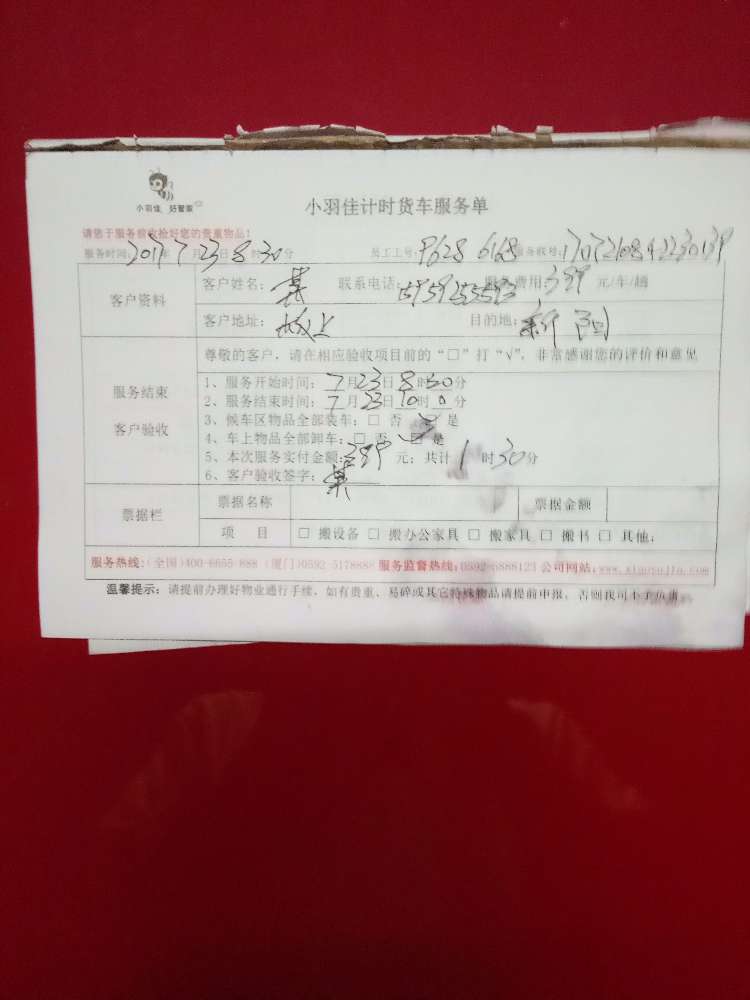 小羽佳 好管家
小羽佳计时货车服务单
请您于服务前收捡好您的贵重物品!
服务时间: 2017年7月23日8时30分 员工工号: P628 6168 服务账号:
客户资料
客户姓名: 联系电话: 服务费用: 元/车/趟
客户地址: 坂上 目的地: 新阳
尊敬的客户,请在相应验收项目前的“□”打“√”,非常感谢您的评价和意见
服务结束
客户验收
1、服务开始时间: 7月23日8时30分
2、服务结束时间: 7月23日10时0分
3、候车区物品全部装车: □ 否 □ 是
4、车上物品全部卸车: □ 否 □ 是
5、本次服务实付金额: 元; 共计 1时30分
6、客户验收签字:
票据栏
票据名称 票据金额
项 目 □ 搬设备 □ 搬办公家具 □ 搬家具 □ 搬书 □ 其他:
服务热线:(全国)400-6655-888 (厦门)0592-5178888 服务监督热线:0592-6888123 公司网站:www.xiaoyujia.com
温馨提示: 请提前办理好物业通行手续,如有贵重、易碎或其它特殊物品请提前申报,否则我司不予负责